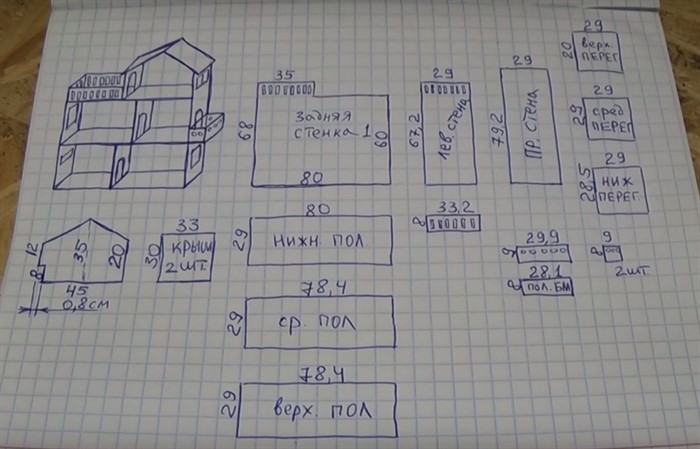 35
68
задняя
стенка 1
60
80
29
67,2
лев. стена
29
79,2
ПР. СТЕНА
29
20
верх.
ПЕРЕГ.
29
29
сред
ПЕРЕГ.
29
28,5
ниж
ПЕРЕГ.
12
8
35
20
45
0,8см
33
30
КРЫШ
2 ШТ.
80
29
НИЖН. ПОЛ
33,2
8
29,9
9
28,1
8
ПОЛ. БМ
9
8
2шт
78,4
29
ср. ПОЛ
78,4
29
верх. ПОЛ